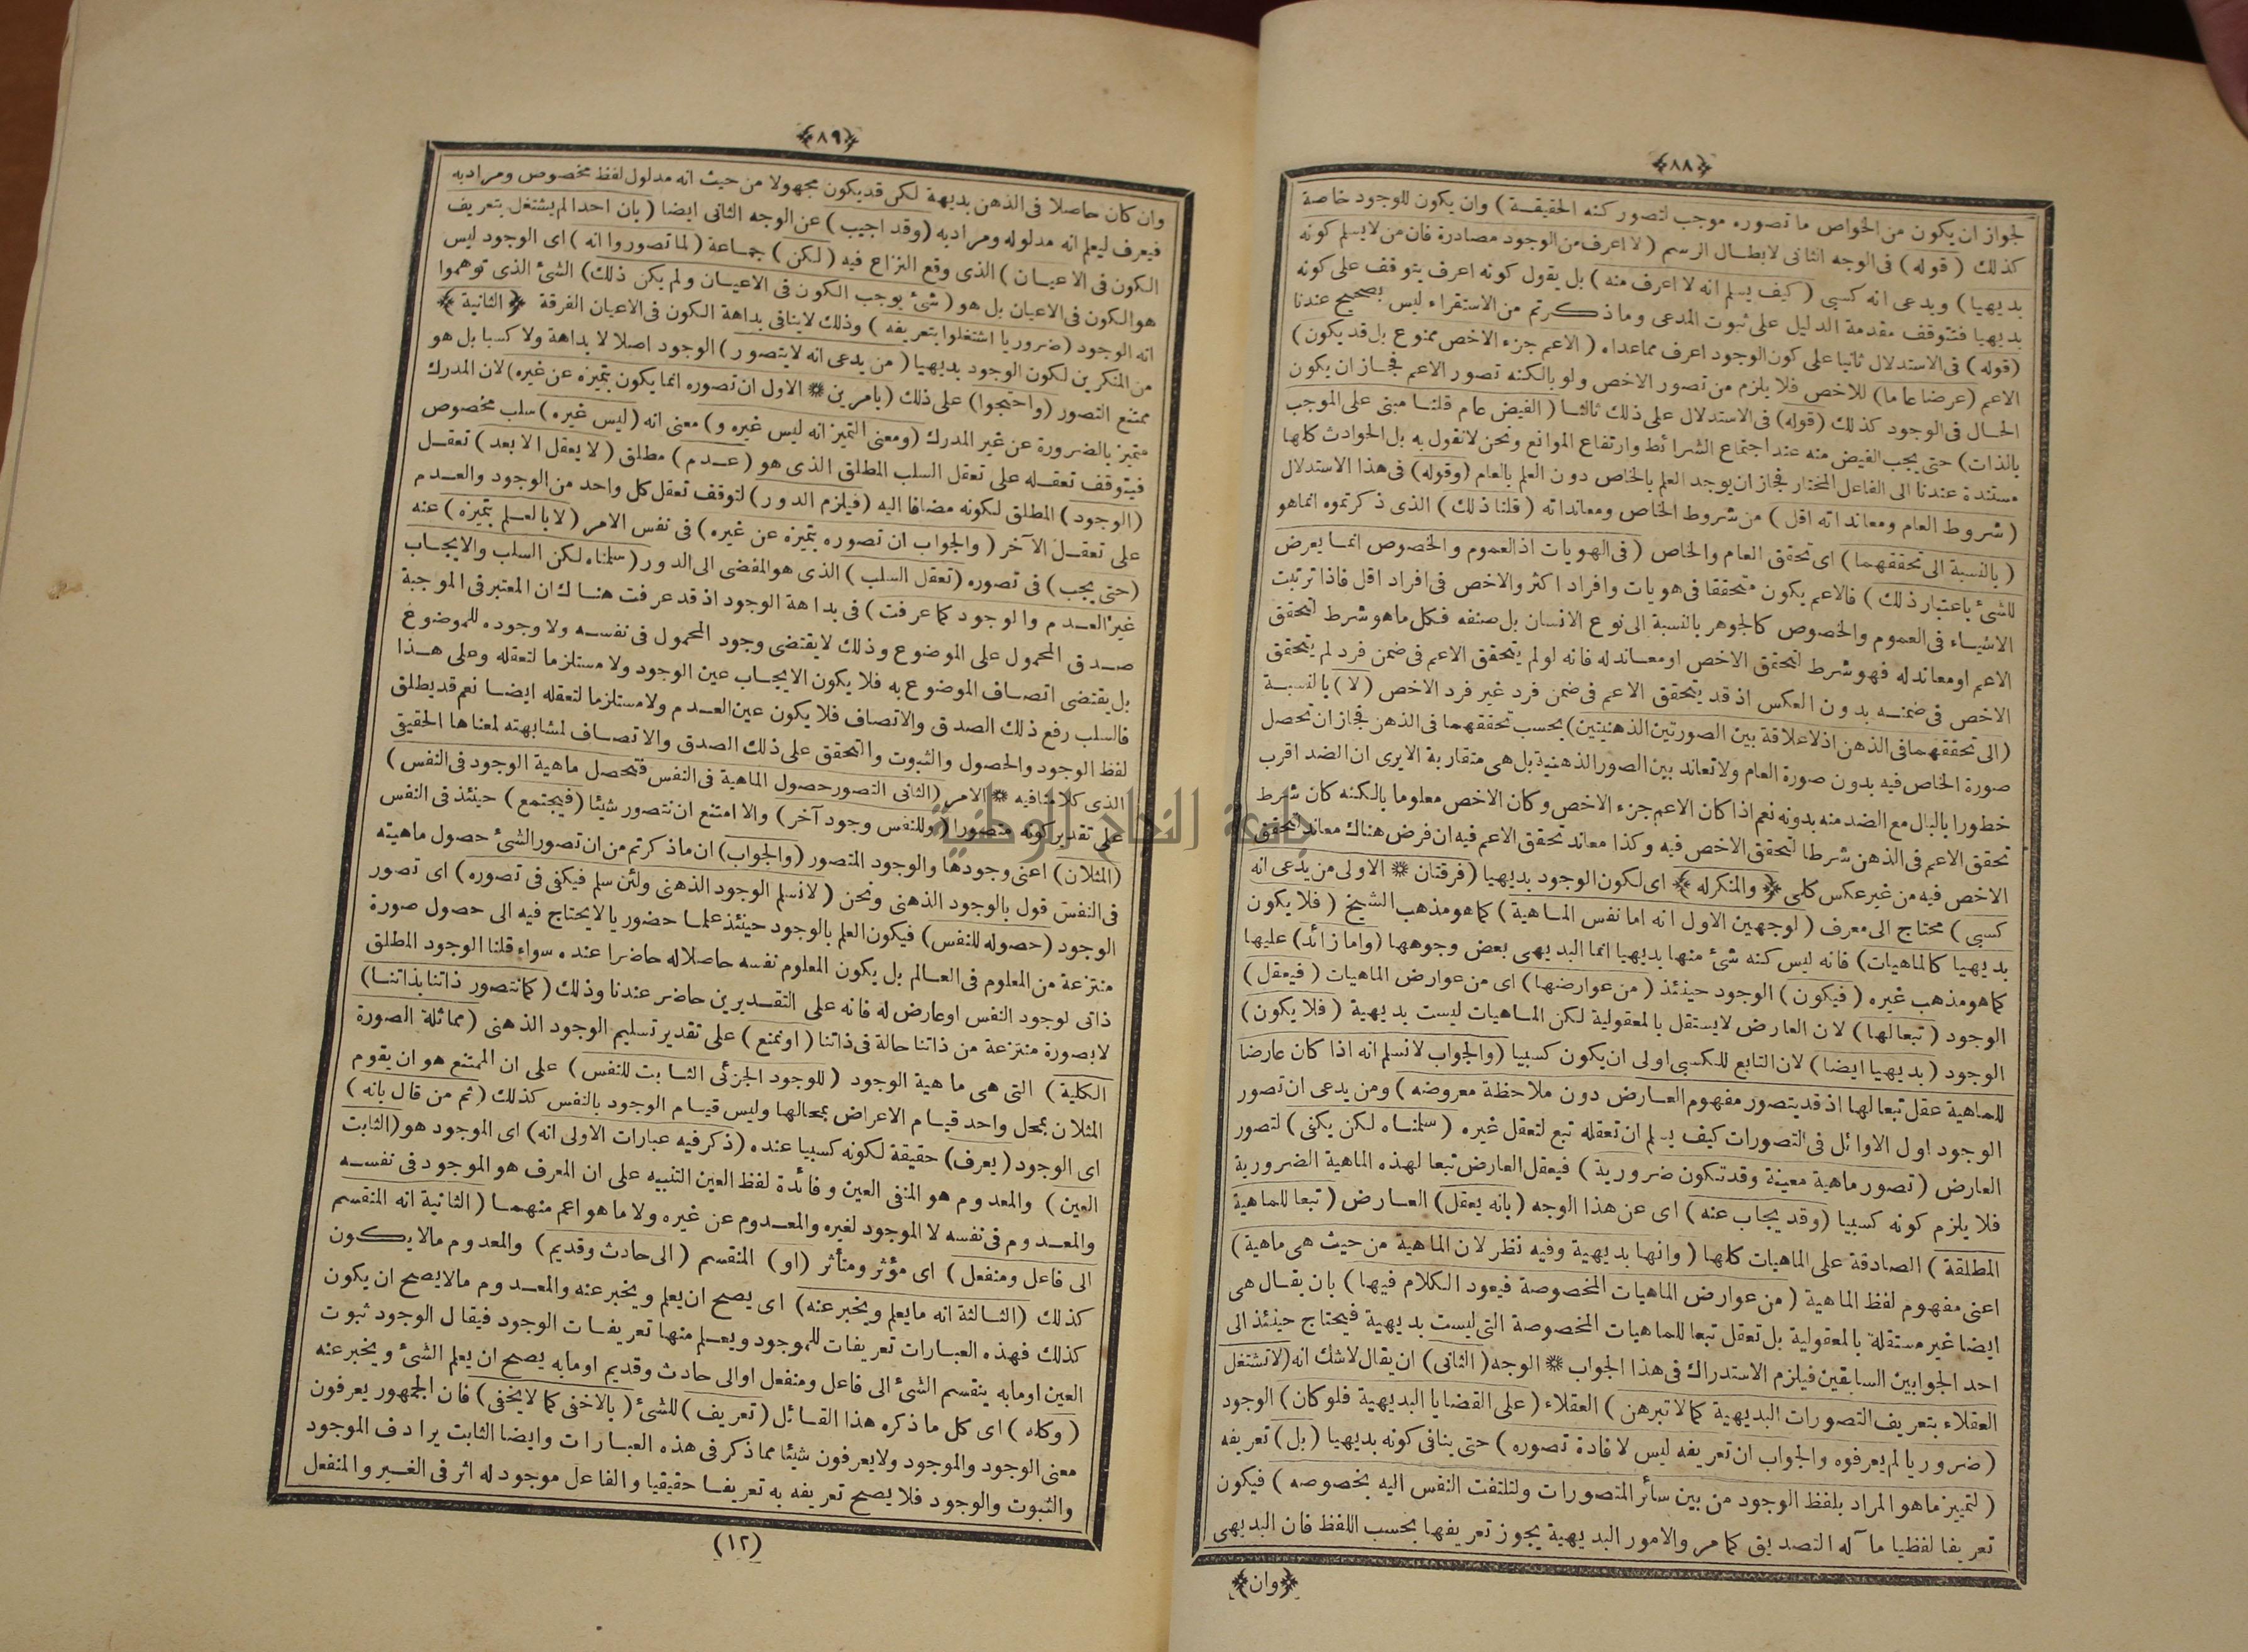 ﴿٨٨﴾
لجواز ان يكون من الخواص ما تصوره موجب لتصور كنه الحقيقة ) وان يكون للوجود خاصة
كذلك ( قوله ) فى الوجه الثانى لابطال الرسم ( لا اعرف من الوجود مصادرة فان من لا يسلم كونه
بديهيا ) ويدعى انه كسبى ( كيف يسلم انه لا اعرف منه ) بل يقول كونه اعرف يتوقف على كونه
بديهيا فتتوقف مقدمة الدليل على ثبوت المدعى وما ذكرتم من الاستقراء ليس بصحيح عندنا
(قوله) فى الاستدلال ثانيا على كون الوجود اعرف مما عداه ( الاعم جزء الاخص ممنوع بل قد يكون )
الاعم (عرضا عاما) للاخص فلا يلزم من تصور الاخص ولو بالكنه تصور الاعم فجاز ان يكون
الحال فى الوجود كذلك (قوله) فى الاستدلال على ذلك ثالثا ( الفيض عام قلنا مبنى على الموجب
بالذات) حتى يجب الفيض منه عند اجتماع الشرائط وارتفاع الموانع ونحن لا نقول به بل الحوادث كلها
مستندة عندنا الى الفاعل المختار فجاز ان يوجد العلم بالخاص دون العلم بالعام (وقوله) فى هذا الاستدلال
( شروط العام ومعانداته اقل ) من شروط الخاص ومعانداته ( قلنا ذلك ) الذى ذكرتموه انما هو
( بالنسبة الى تحققهما ) اى تحقق العام والخاص ( فى الهويات اذ العموم والخصوص انما يعرض
للشئ باعتبار ذلك ) فالاعم يكون متحققا فى هويات وافراد اكثر والاخص فى افراد اقل فاذا ترتبت
الاشياء فى العموم والخصوص كالجوهر بالنسبة الى نوع الانسان بل صنفه فكل ما هو شرط لتحقق
الاعم او معاند له فهو شرط لتحقق الاخص او معاند له فانه لو لم يتحقق الاعم فى ضمن فرد لم يتحقق
الاخص فى ضمنه بدون العكس اذ قد يتحقق الاعم فى ضمن فرد غير فرد الاخص ( لا ) بالنسبة
(الى تحققهما فى الذهن اذ لا علاقة بين الصورتين الذهنيتين) بحسب تحققهما فى الذهن فجاز ان تحصل
صورة الخاص فيه بدون صورة العام ولا تعاند بين الصور الذهنية بل هى متقاربة الا يرى ان الضد اقرب
خطورا بالبال مع الضد منه بدونه نعم اذا كان الاعم جزء الاخص وكان الاخص معلوما بالكنه كان شرط
تحقق الاعم فى الذهن شرطا لتحقق الاخص فيه وكذا معاند تحقق الاعم فيه ان فرض هناك معاند لتحقق
الاخص فيه من غير عكس كلى ﴿ والمنكر له ﴾ اى لكون الوجود بديهيا ( فرقتان * الاولى من يدعى انه
كسبى ) محتاج الى معرف ( لوجهين الاول انه اما نفس الماهية ) كما هو مذهب الشيخ ( فلا يكون
بديهيا كالماهيات) فانه ليس كنه شئ منها بديهيا انما البديهى بعض وجوهها (واما زائد) عليها
كما هو مذهب غيره ( فيكون ) الوجود حينئذ ( من عوارضها ) اى من عوارض الماهيات ( فيعقل )
الوجود ( تبعا لها ) لان العارض لا يستقل بالمعقولية لكن الماهيات ليست بديهية ( فلا يكون )
الوجود ( بديهيا ايضا ) لان التابع للكسبى اولى ان يكون كسبيا (والجواب لا نسلم انه اذا كان عارضا
للماهية عقل تبعا لها اذ قد يتصور مفهوم العارض دون ملاحظة معروضه ) ومن يدعى ان تصور
الوجود اول الاوائل فى التصورات كيف يسلم ان تعقله تبع لتعقل غيره ( سلمناه لكن يكفى ) لتصور
العارض ( تصور ماهية معينة وقد تكون ضرورية ) فيعقل العارض تبعا لهذه الماهية الضرورية
فلا يلزم كونه كسبيا (وقد يجاب عنه ) اى عن هذا الوجه ( بانه يعقل ) العارض ( تبعا للماهية
المطلقة ) الصادقة على الماهيات كلها ( وانها بديهية وفيه نظر لان الماهية من حيث هى ماهية )
اعنى مفهوم لفظ الماهية ( من عوارض الماهيات المخصوصة فيعود الكلام فيها ) بان يقال هى
ايضا غير مستقلة بالمعقولية بل تعقل تبعا للماهيات المخصوصة التى ليست بديهية فيحتاج حينئذ الى
احد الجوابين السابقين فيلزم الاستدراك فى هذا الجواب * الوجه ( الثانى ) ان يقال لا شك انه (لا تشتغل
العقلاء بتعريف التصورات البديهية كما لا تبرهن ) العقلاء ( على القضايا البديهية فلو كان ) الوجود
( ضروريا لم يعرفوه والجواب ان تعريفه ليس لافادة تصوره ) حتى ينافى كونه بديهيا ( بل ) تعريفه
( لتمييز ما هو المراد بلفظ الوجود من بين سائر المتصورات ولتلتفت النفس اليه بخصوصه ) فيكون
تعريفا لفظيا مآله التصديق كما مر والامور البديهية يجوز تعريفها بحسب اللفظ فان البديهى
﴿وان﴾
﴿٨٩﴾
وان كان حاصلا فى الذهن بديهة لكن قد يكون مجهولا من حيث انه مدلول لفظ مخصوص ومراد به
فيعرف ليعلم انه مدلوله ومراد به (وقد اجيب ) عن الوجه الثانى ايضا ( بان احدا لم يشتغل بتعريف
الكون فى الاعيان ) الذى وقع النزاع فيه ( لكن ) جماعة ( لما تصوروا انه ) اى الوجود ليس
هو الكون فى الاعيان بل هو ( شئ يوجب الكون فى الاعيان ولم يكن ذلك) الشئ الذى توهموا
انه الوجود (ضروريا اشتغلوا بتعريفه ) وذلك لا ينافى بداهة الكون فى الاعيان الفرقة ﴿ الثانية ﴾
من المنكرين لكون الوجود بديهيا ( من يدعى انه لا يتصور ) الوجود اصلا لا بداهة ولا كسبا بل هو
ممتنع التصور (واحتجوا) على ذلك (بامرين * الاول ان تصوره انما يكون بتميزه عن غيره) لان المدرك
متميز بالضرورة عن غير المدرك ( ومعنى التميز انه ليس غيره و ) معنى انه ( ليس غيره ) سلب مخصوص
فيتوقف تعقله على تعقل السلب المطلق الذى هو ( عدم ) مطلق ( لا يعقل الا بعد ) تعقل
(الوجود ) المطلق لكونه مضافا اليه ( فيلزم الدور ) لتوقف تعقل كل واحد من الوجود والعدم
على تعقل الآخر ( والجواب ان تصوره بتميزه عن غيره ) فى نفس الامر ( لا بالعلم بتميزه ) عنه
( حتى يجب ) فى تصوره ( تعقل السلب ) الذى هو المفضى الى الدور ( سلمناه لكن السلب والايجاب
غير العدم والوجود كما عرفت ) فى بداهة الوجود اذ قد عرفت هناك ان المعتبر فى الموجبة
صدق المحمول على الموضوع وذلك لا يقتضى وجود المحمول فى نفسه ولا وجوده للموضوع
بل يقتضى اتصاف الموضوع به فلا يكون الايجاب عين الوجود ولا مستلزما لتعقله وعلى هذا
فالسلب رفع ذلك الصدق والاتصاف فلا يكون عين العدم ولا مستلزما لتعقله ايضا نعم قد يطلق
لفظ الوجود والحصول والثبوت والتحقق على ذلك الصدق والاتصاف لمشابهته لمعناها الحقيقى
الذى كلامنا فيه * الامر (الثانى التصور حصول الماهية فى النفس فتحصل ماهية الوجود فى النفس )
على تقدير كونه متصورا ( وللنفس وجود آخر ) والا امتنع ان تتصور شيئا (فيجتمع ) حينئذ فى النفس
(المثلان) اعنى وجودها والوجود المتصور (والجواب) ان ما ذكرتم من ان تصور الشئ حصول ماهيته
فى النفس قول بالوجود الذهنى ونحن ( لا نسلم الوجود الذهنى ولئن سلم فيكفى فى تصوره ) اى تصور
الوجود (حصوله للنفس ) فيكون العلم بالوجود حينئذ علما حضوريا لا يحتاج فيه الى حصول صورة
منتزعة من المعلوم فى العالم بل يكون المعلوم نفسه حاصلا له حاضرا عنده سواء قلنا الوجود المطلق
ذاتى لوجود النفس او عارض له فانه على التقديرين حاضر عندنا وذلك ( كما نتصور ذاتنا بذاتنا )
لا بصورة منتزعة من ذاتنا حالة فى ذاتنا ( او نمنع ) على تقدير تسليم الوجود الذهنى ( مماثلة الصورة
الكلية ) التى هى ماهية الوجود ( للوجود الجزئى الثابت للنفس ) على ان الممتنع هو ان يقوم
المثلان بمحل واحد قيام الاعراض بمحالها وليس قيام الوجود بالنفس كذلك ( ثم من قال بانه )
اى الوجود ( يعرف) حقيقة لكونه كسبيا عنده (ذكر فيه عبارات الاولى انه) اى الموجود هو (الثابت
العين ) والمعدوم هو المنفى العين وفائدة لفظ العين التنبيه على ان المعرف هو الموجود فى نفسه
والمعدوم فى نفسه لا الموجود لغيره والمعدوم عن غيره ولا ما هو اعم منهما ( الثانية انه المنقسم
الى فاعل ومنفعل ) اى مؤثر ومتأثر (او ) المنقسم ( الى حادث وقديم ) والمعدوم ما لا يكون
كذلك (الثالثة انه ما يعلم ويخبر عنه ) اى يصح ان يعلم ويخبر عنه والمعدوم ما لا يصح ان يكون
كذلك فهذه العبارات تعريفات للموجود ويعلم منها تعريفات الوجود فيقال الوجود ثبوت
العين او ما به ينقسم الشئ الى فاعل ومنفعل او الى حادث وقديم او ما به يصح ان يعلم الشئ ويخبر عنه
( وكله ) اى كل ما ذكره هذا القائل ( تعريف ) للشئ ( بالاخفى كما لا يخفى ) فان الجمهور يعرفون
معنى الوجود والموجود ولا يعرفون شيئا مما ذكر فى هذه العبارات وايضا الثابت يرادف الموجود
والثبوت والوجود فلا يصح تعريفه به تعريفا حقيقيا والفاعل موجود له اثر فى الغير والمنفعل
(١٢)
جامعة النجاح الوطنية